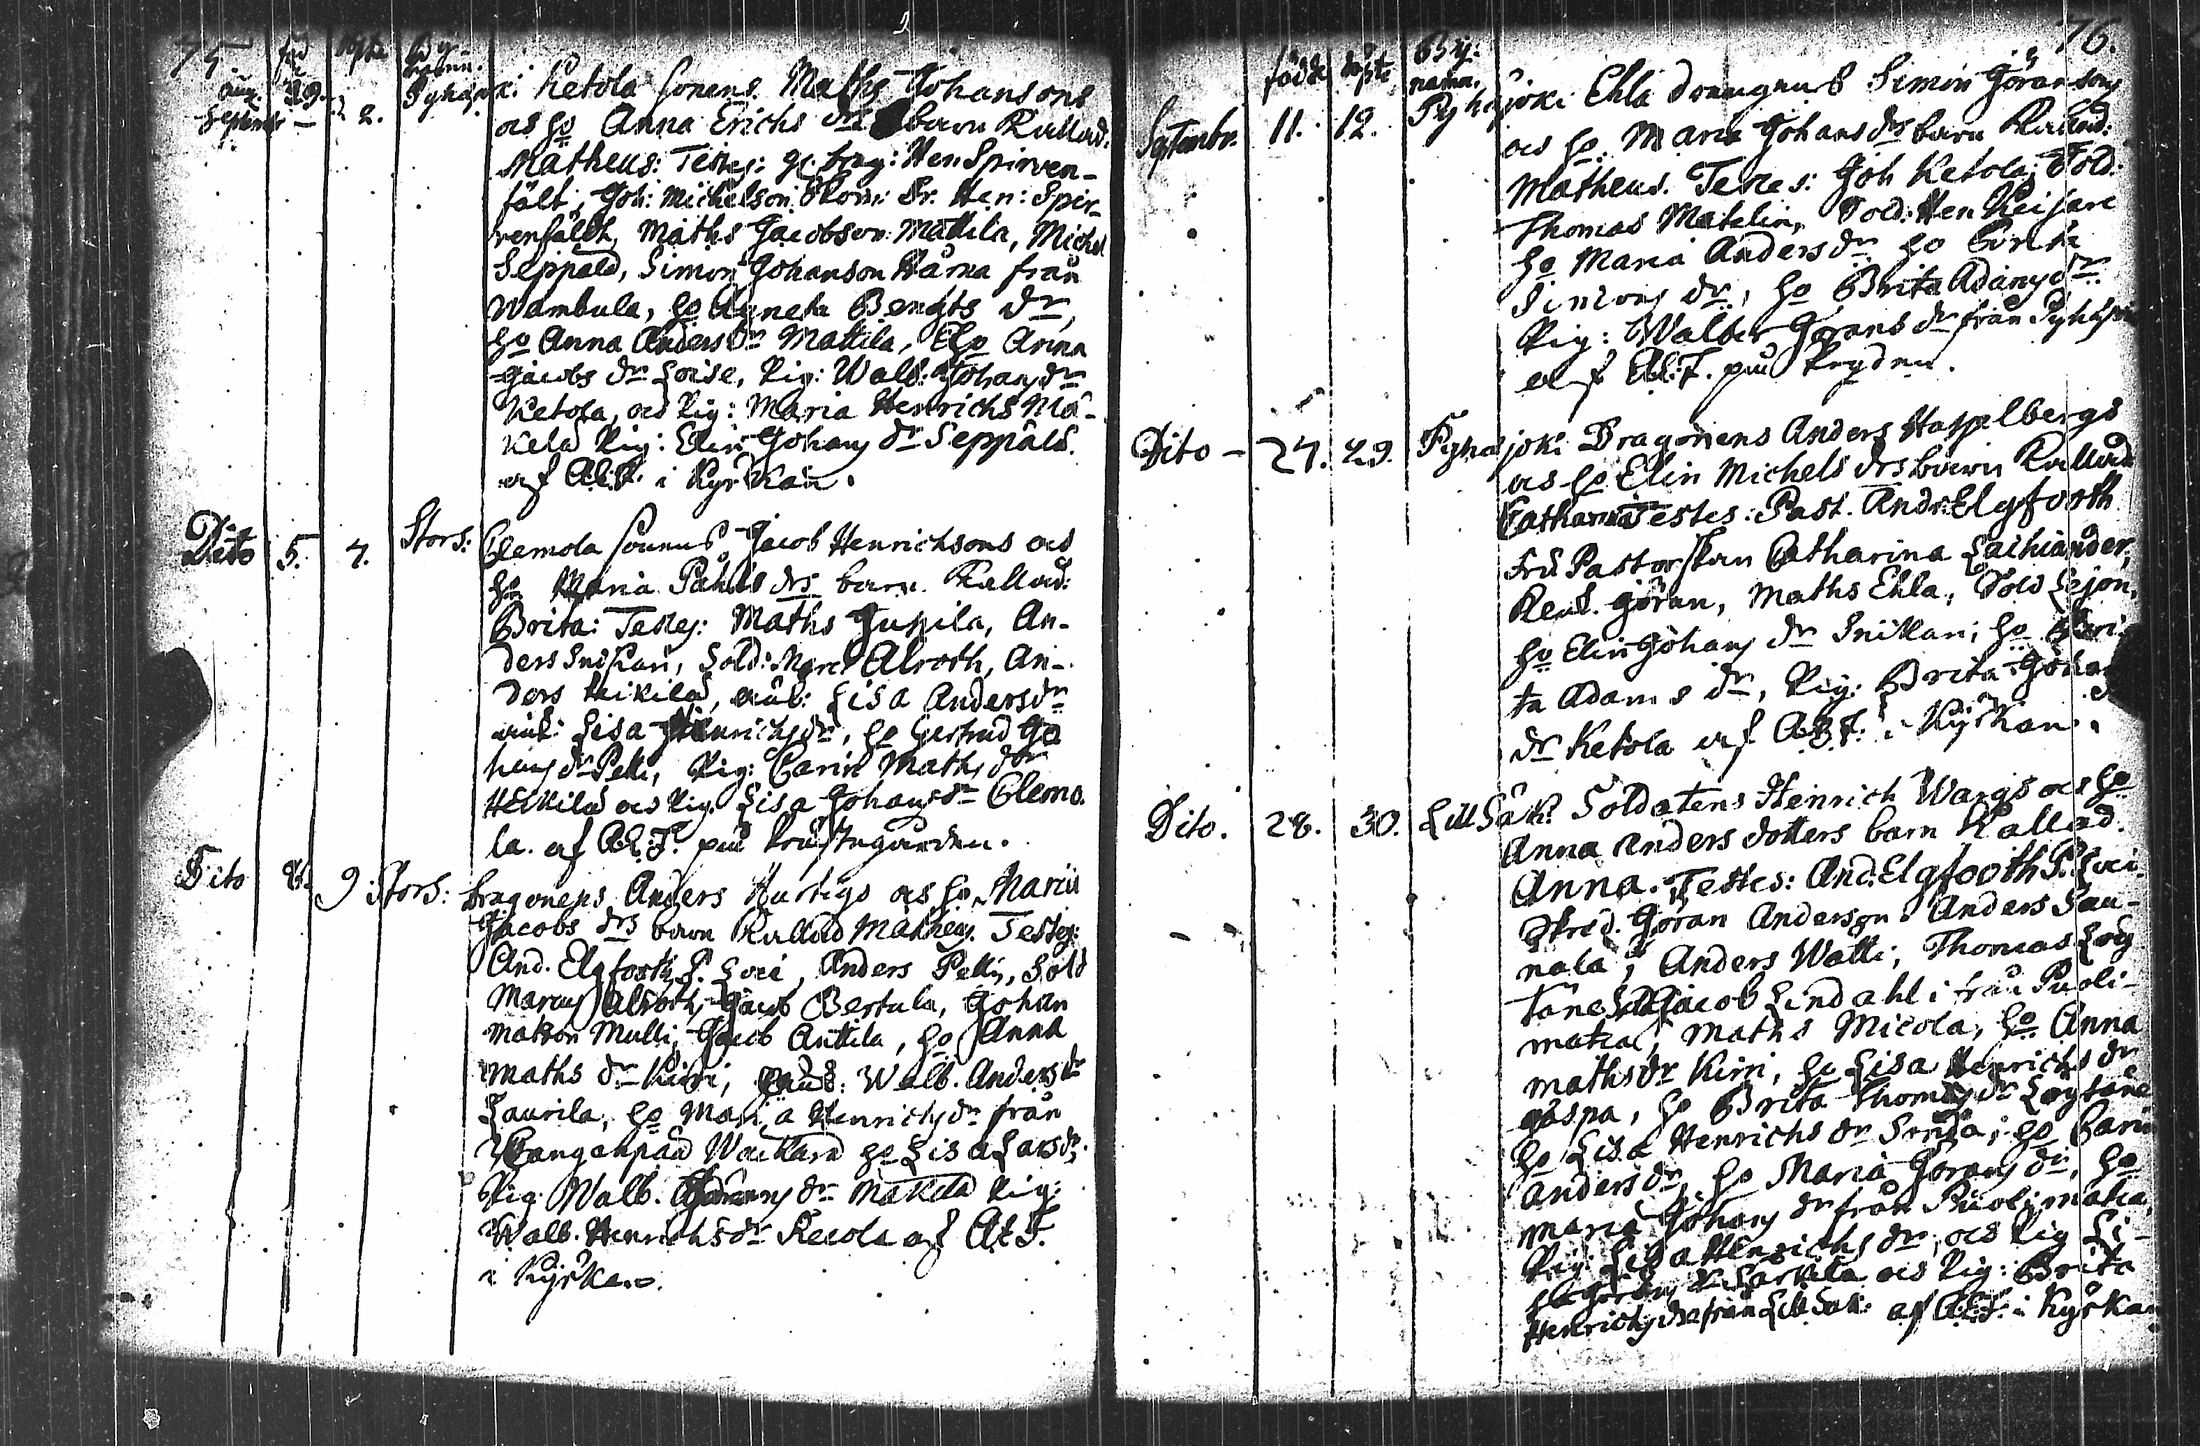 75. föd döpte By-
namn.
Aug. 29.
September — 2. Pyhäjoki Ketola sonens Maths Johansons
och ho Anna Erichs drs barn Kallad.
Matheus: Testes: Hen Spirven-
fält, Joh: Michelson Hen: Spir-
renfäldt, Maths Jacobson Mattila, Michel
Seppälä, Simon Johanson Härna från
Wambula, ho Agneta Bengts dr,
ho Anna Anders dr Mattila, ho Anna
Jacobs dr Loise, Pig: Walb: Johans dr
Ketola, och Pig: Maria Henrichs Mä-
kelä Pig: Elin Johans dr Seppälä.
af A:E:F. i Kyrkan.
Dito 5. 7. Stors: Clemola sonens Jacob Henrichsons och
ho Maria drs barn Kallad:
Brita: Testes: Maths Jupila, An-
ders Snikari, Sold: Marc Alroth, An-
ders Heikilä, Lisa Anders dr
Lisa Henrichs dr, ho Gertrud Jo
hans dr Pelli, Pig: Carin Maths dotr
Heikilä och Pig. Lisa Johans dr Clemo-
la. af A:E:F. på Prästegården.
Dito 8. 9. Stors: Dragonens Anders Hurtigs och ho Maria
Jacobs drs barn Kallad Matheus. Testes:
And. Elgfooth P. Loci, Anders Pelli, Sold
Marcus Alroth, Jacob Bertula, Johan
Matson Mulli, Jacob Anttila, ho Anna
Maths dr Kirri, Walb. Anders dr
Laurila, ho Maria Henrichs dr från
Kangahpää ho Lisa Lars dr.
Pig: Walb. dr Mäkilä Pig:
Walb. Henrichs dr Recola af A:E:F.
i Kyrkan.
76.
födde döpte By:
namn.
Septembr. 11. 12. Pyhäjoki Ehla drängens Simon Göransons
och ho. Maria Johans drs barn Kallad:
Matheus. Testes: Joh Ketola, Sold:
Thomas Matelin, Sold: Hen Keijare
ho Maria Anders dr, ho
Simons dr, ho Brita Adams dr
Pig: Walbor Görans dr från Pyhäjoki
af A:E:F. på
Dito — 27. 29. Pyhäjoki Dragonens Anders Haselbergs
och ho Elin Michels drs barn Kallad
Catharina Testes: Past. And: Elgfooth
Fru Pastorskan Catharina
Göran, Maths Ehla, Sold Lejon,
ho Elin Johans dr Snikari, ho Bri-
ta Adams dr, Pig: Brita Johans
dr Ketola af A:E:F: i Kyrkan.
Dito. 28. 30. Lill Säk: Soldatens Henrich Wargs och ho
Anna Anders dotters barn Kallad.
Anna. Testes: And. Elgfooth P. Loci.
Göran Anderson, Anders Sau-
nala, Anders Walli, Thomas Löy
täne Sold Jacob Lindahl i från Puoli-
matca, Maths Micola, ho Anna
Maths dr Kirri, ho Lisa Henrichs dr
ho Brita Thomas dr Löytäne
ho Lisa Henrichs dr ho Carin
Anders dr, ho Maria Görans dr, ho
Maria Johans dr från Puolimatca,
Pig: Lisa Henrichs dr, och Pig Li-
sa Görans dr och Pig: Brita
Henrichs dr från Lill Säk: af A:E:F: i Kyrkan